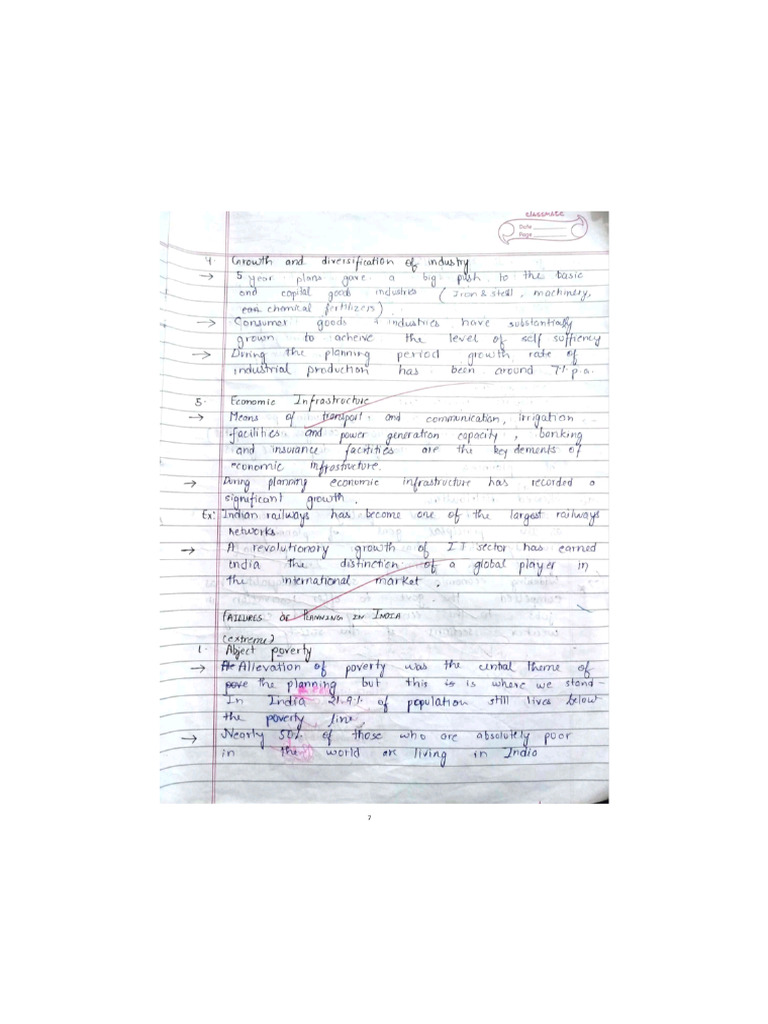 classmate
Date
Page
4. Growth and diversification of industry
→ 5 year plans gave a big push to the basic
and capital goods industries (Iron & steel, machinery,
chemical fertilizers).
→ Consumer goods industries have substantially
grown to acheive the level of self suffiency
→ During the planning period growth rate of
industrial production has been around 7% p.a.
5. Economic Infrastructure
→ Means of transport and communication, irrigation
facilities and power generation capacity, banking
and insurance facitities are the key elements of
economic infrastructure.
→ During planning economic infrastructure has recorded a
significant growth.
Ex: Indian railways has become one of the largest railways
networks
→ A revolutionary growth of IT sector has earned
India the distinction of a global player in
the international market.
FAILURES OF PLANNING IN INDIA
(extreme)
1. Abject poverty
→ Allevation of poverty was the central theme of
the planning but this is where we stand -
In India 21.9% of population still lives below
the poverty line.
→ Nearly 50% of those who are absolutely poor
in the world are living in India
7